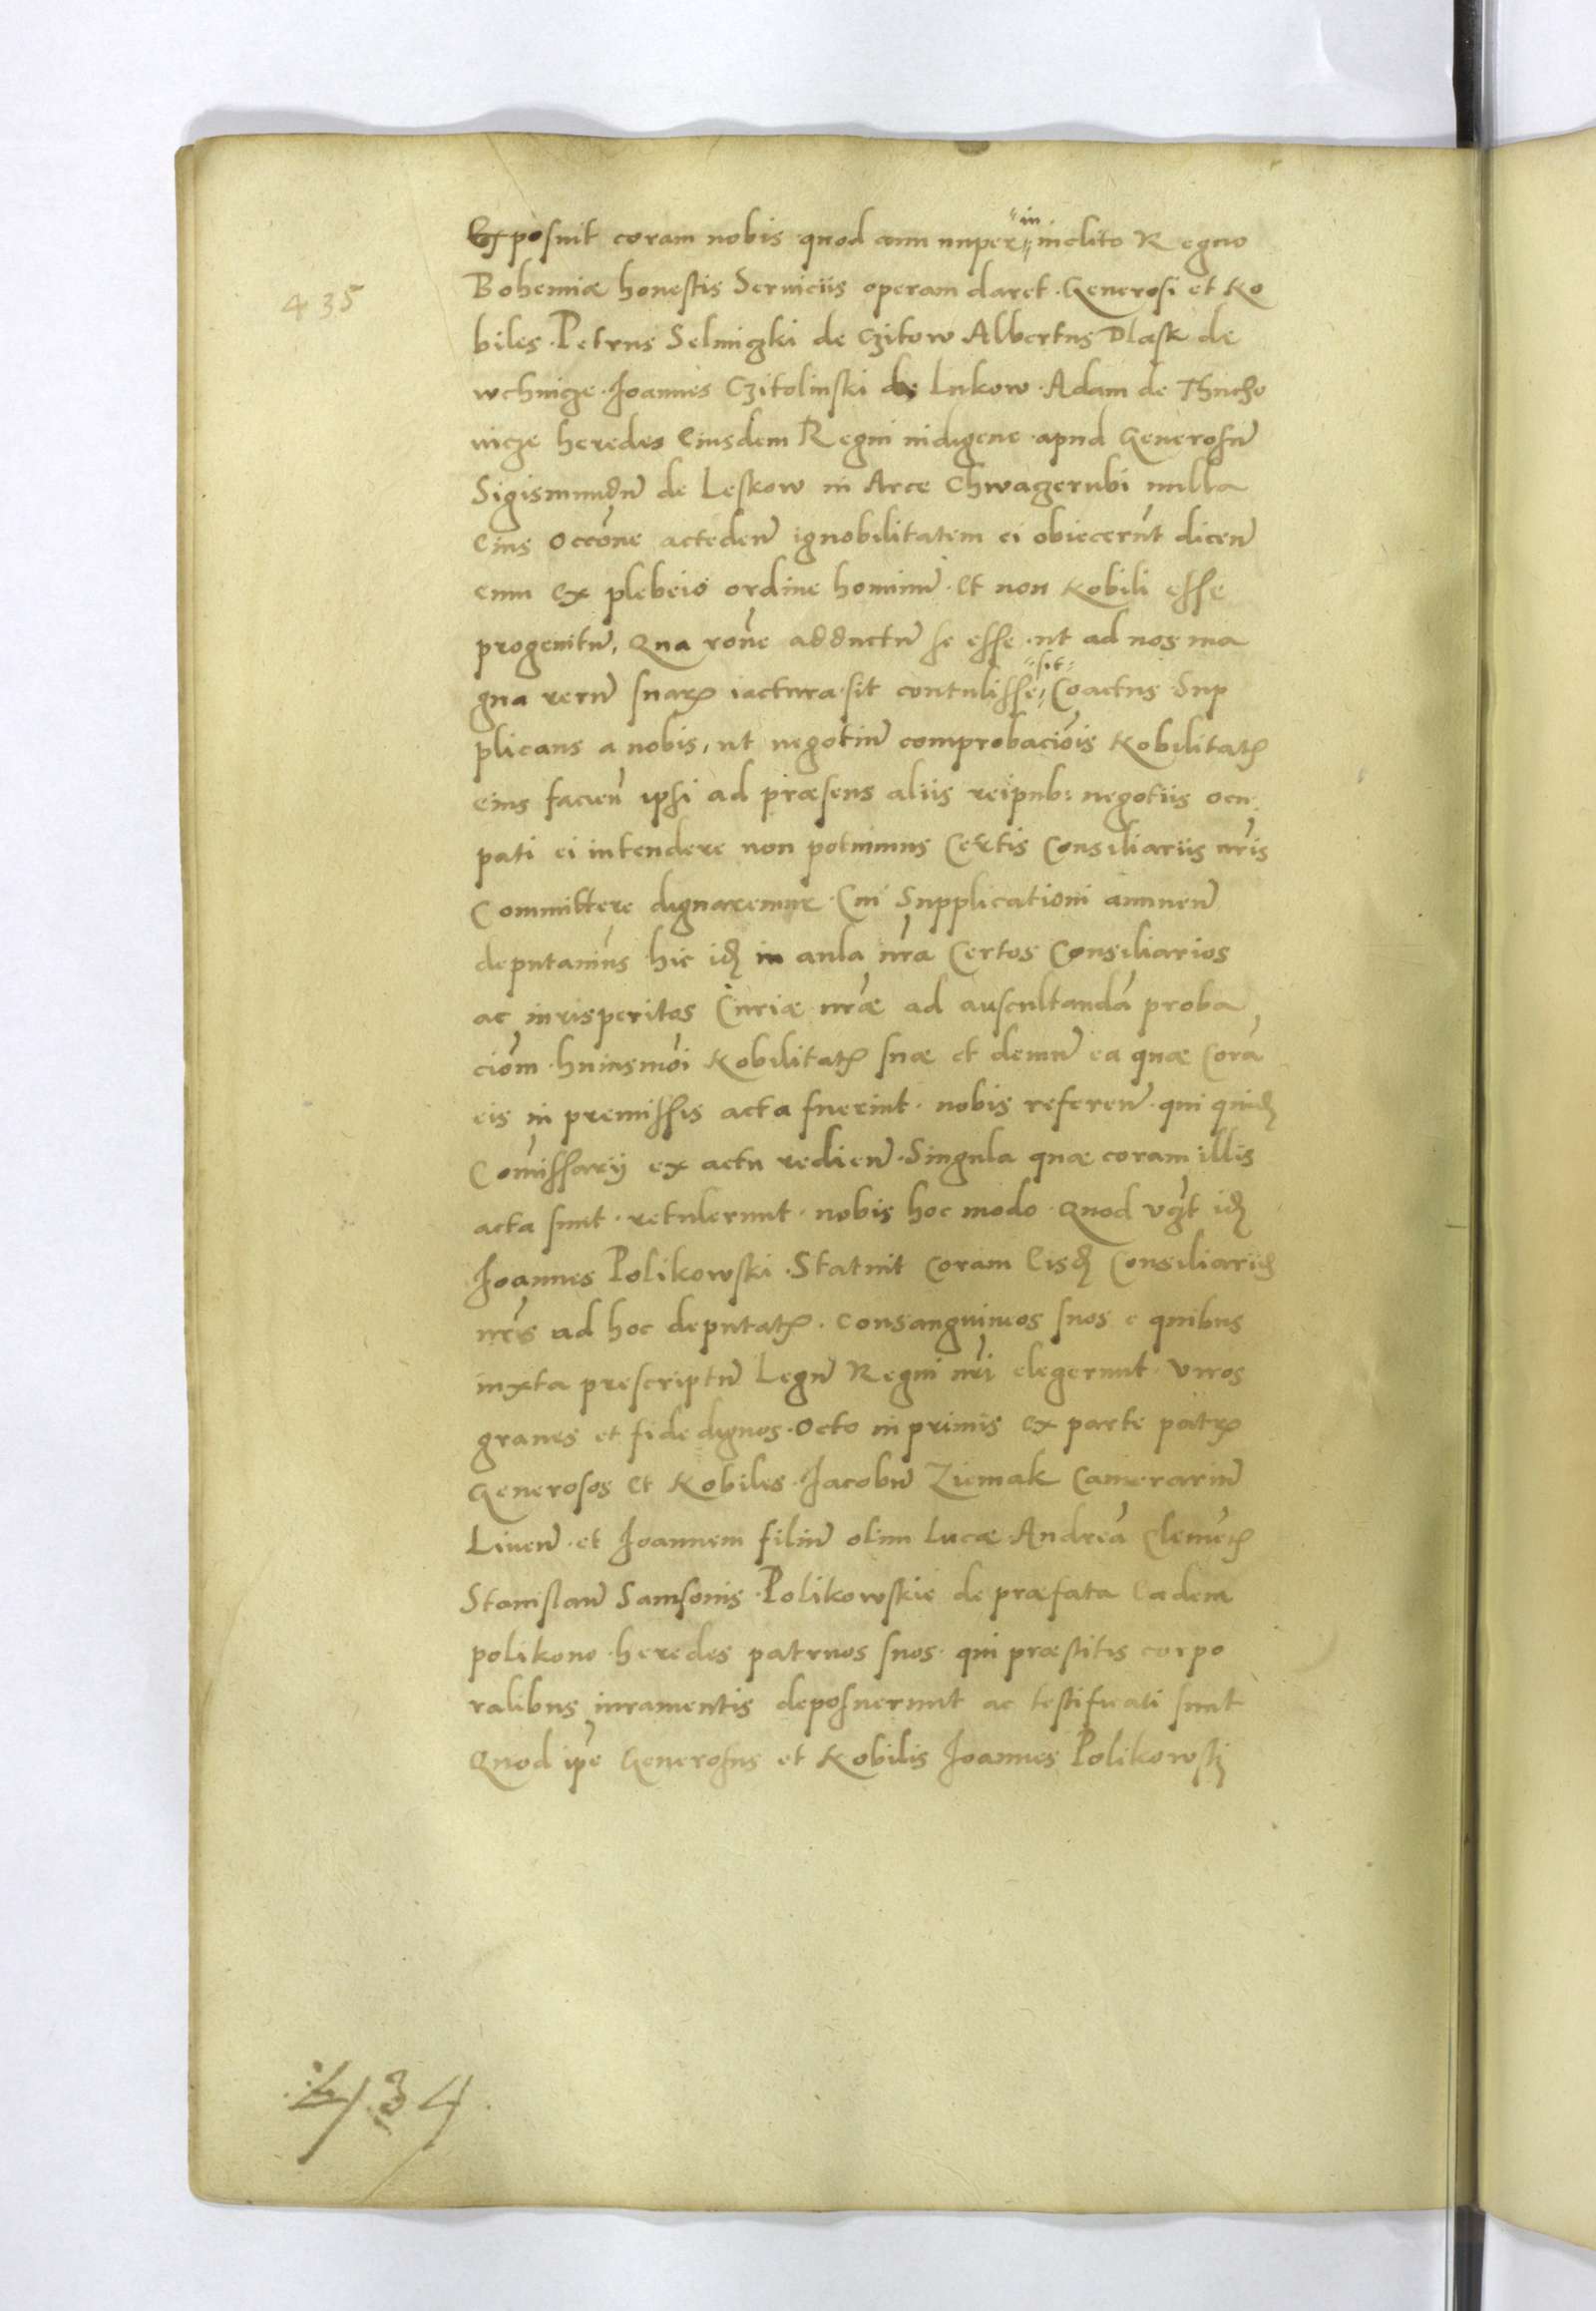 Exposuit coram nobis quod cum nuper "in" inclito Regno
435
Bohemiæ honestis Seruiciis operam daret. Generosi et No
biles. Petrus Selniczki de Czitow Albertus Dlask de
wchnicze. Joannes Czitolinski de Lukow. Adam de Thucho
uicze heredes Eiusdem Regni indigene apud Generosu͂
Sigismundu͂ de Leskow in Arce Chwagerubi nulla
Eius Occo͂ne acceden͂ ignobilitatem ei obiecerūt dicen͂
eum ex plebeio ordine hominu͂. Et non Nobili esse
progenitu͂, Qua ro͂ne adductu͂ se esse. ut ad nos ma
gna reru͂ suaꝝ iactura. sit contulisse "sit" Coactus Sup
plicans a nobis, ut negotiu͂ comprobacio͂is Nobilitatꝭ
eius facien͂ ipsi ad præsens aliis reipub: negotiis ocu
pati ei intendere non potuimus Certis Consiliariis nr͂is
Committere dignaremur. Cui Supplicationi annuen͂
deputauim͂us hic id in aula nr͂a Certos Consiliarios
ac iurisperitos Curiæ nr͂æ ad auscultandā proba
cio͂m huiusmo͂i Nobilitatꝭ suæ et demu͂ ea quæ Corā
eis in premissis acta fuerint. nobis referen͂. qui quid
Com͂issarij ex actu redien͂. Singula quæ coram illis
acta sunt. retulerunt. nobis hoc modo. Quod vr͂t id
Joannes Polikowski. Statuit Coram Eisd Consiliariis
nr͂is ad hoc deputatꝭ. Consanguineos suos e quibus
iuxta prescriptu͂ Legu͂ Regni nr͂i elegerunt. Viros
graues et fide dignos. Octo in primis ex parte patrꝭ
Generosos et Nobiles. Jacobu͂ Ziemak Camerariu͂
Liuen͂. et Joannem filiu͂ olim Lucæ. Andreā Clemen͂ꝭ
Stanislau͂ Samsonis. Polikowskie de præfata Eadem
polikouo. heredes patruos suos. qui præstitis corpo
ralibus iuramentis deposuerunt ac testificati sunt
Quod ip͂e Generosus et Nobilis Joannes Polikowski
434